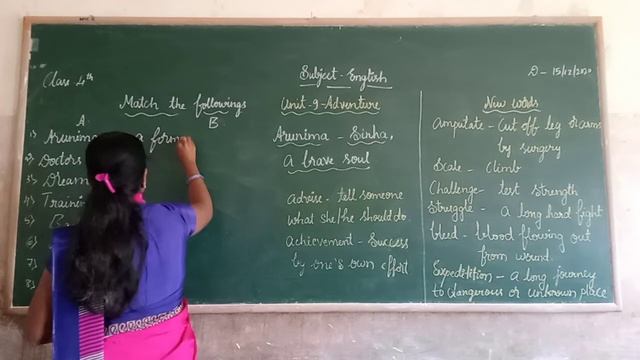 Class 4th
Subject - English
D - 15/12/20
Match the followings
A
B
1) Arunima a form
2) Doctors
3) Dream
4) Trainin
5)
6)
7)
8)
Unit-9-Adventure
Arunima - Sinha,
a brave soul
advise - tell someone
what she/he should do.
achievement - Success
by one's own effort
New words
Amputate - Cut off leg or arms
by surgery
Scale - climb
Challenge - test strength
Struggle - a long hard fight
bleed - blood flowing out
from wound.
Expedetition - a long journey
to dangerous or unknown place